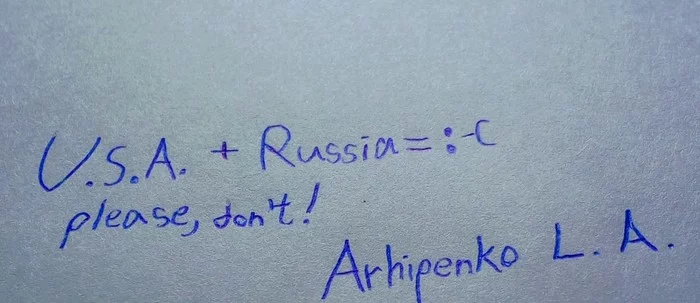 U.S.A. + Russia = :-C
please, don't!
Arhipenko L. A.